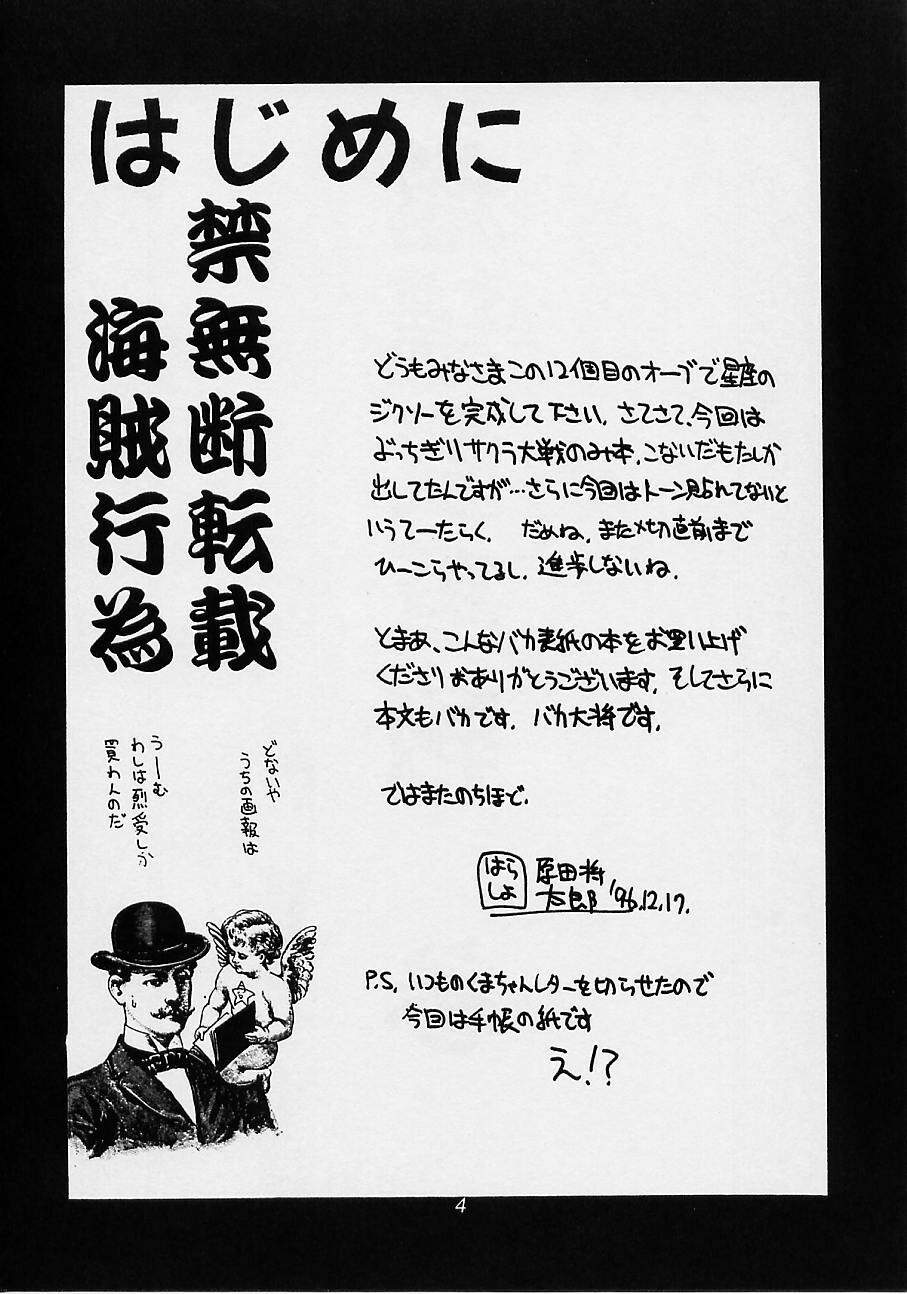 はじめに
禁無断転載
海賊行為
どうもみなさまこの12個目のオーブで星座の
ジクソーを完成して下さい。さてさて、今回は
ぶっちぎりサクラ大戦のみ本。こないだもたしか
出してたんですが…さらに今回はトーン貼れてないと
いうてーたらく。 だめね。また〆切直前まで
ひーこらやってるし。進歩しないね。
とまあ、こんなバカ表紙の本をお買い上げ
くださりおありがとうございます。そしてさらに
本文もバカです。バカ大将です。
ではまたのちほど。
はらしょ
原田将
太郎 '96.12.17.
P.S. いつものくまちゃんレターを切らせたので
今回は手帳の紙です
え!?
どないや
うちの画報は
うーむ
わしは烈愛しか
買わんのだ
4